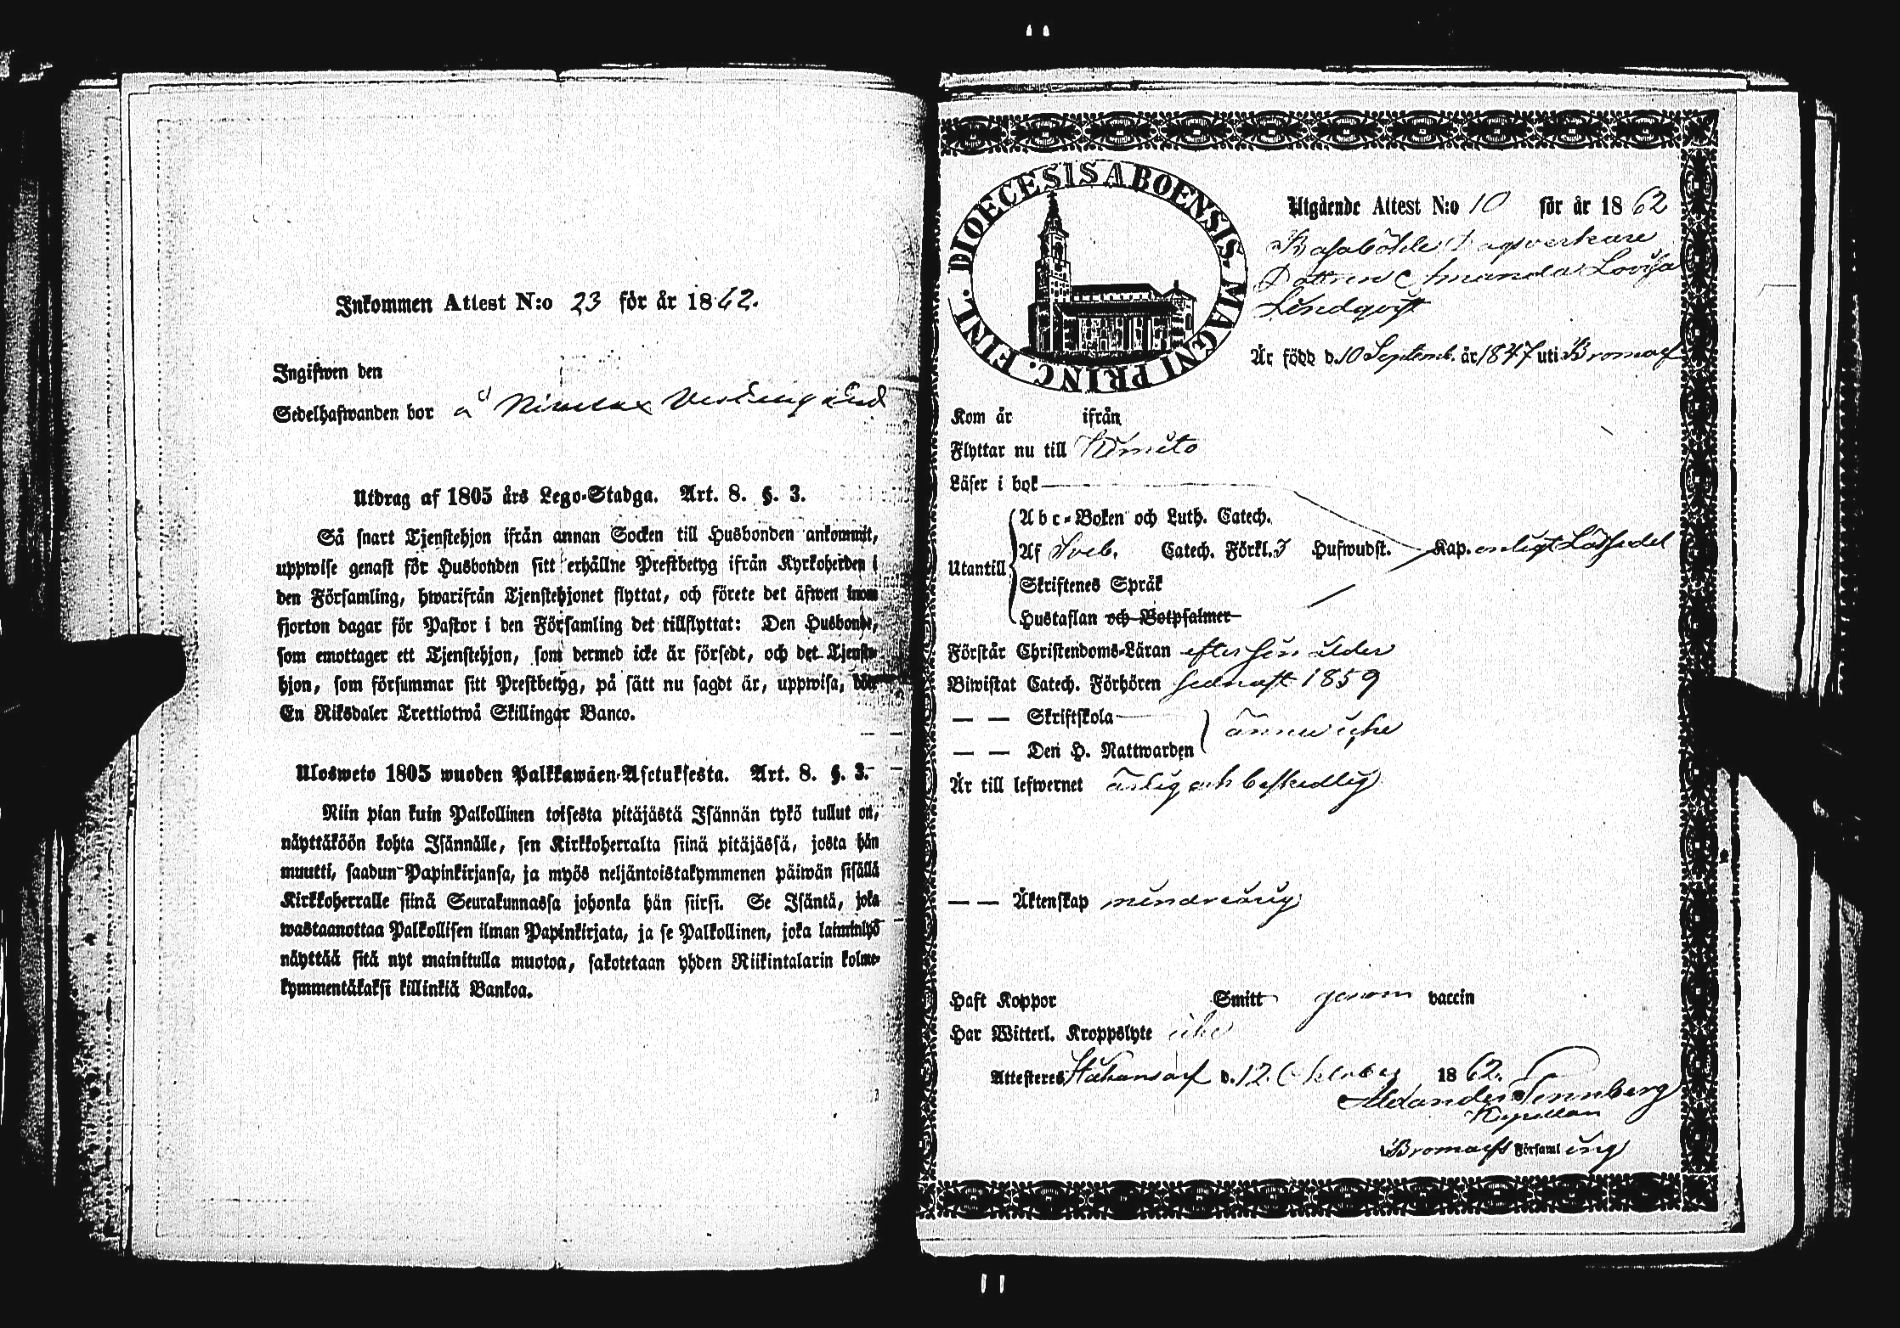 Inkommen Attest N:o 23 för år 1862.
Ingifwen den
Sedelhafwanden bor å
Utdrag af 1805 års Lego-Stadga. Art. 8. §. 3.
Så snart Tjenstehjon ifrån annan Socken till Husbonden ankommit,
uppwise genast för Husbonden sitt erhållne Prestbetyg ifrån Kyrkoherden i
den Församling, hwarifrån Tjenstehjonet flyttat, och förete det äfwen inom
fjorton dagar för Pastor i den Församling det tillflyttat: Den Husbonde,
som emottager ett Tjenstehjon, som dermed icke är försedt, och det Tjenste-
hjon, som försummar sitt Prestbetyg, på sätt nu sagdt är, uppwisa, böte
En Riksdaler Trettiotwå Skillingar Banco.
Ulosweto 1805 wuoden Palkkawäen-Asetuksesta. Art. 8. §. 3.
Niin pian kuin Palkollinen toisesta pitäjästä Isännän tykö tullut on,
näyttäköön kohta Isännälle, sen Kirkkoherralta siinä pitäjässä, josta hän
muutti, saadun Papinkirjansa, ja myös neljäntoistakymmenen päiwän sisällä
Kirkkoherralle siinä Seurakunnassa johonka hän siirsi. Se Isäntä, joka
wastaanottaa Palkollisen ilman Papinkirjata, ja se Palkollinen, joka laiminlyö
näyttää sitä nyt mainitulla muotoa, sakotetaan yhden Riikintalarin kolme-
kymmentäkaksi killinkiä Bankoa.
DIOECESIS ABOENSIS. MAGNI PRINC. FINL.
Utgående Attest N:o 10 för år 1862
Dottren Amanda Lovisa
Lindqvist
Är född d. 10 Septemb. år 1847 uti Bromarf
Kom år ifrån
Flyttar nu till Kimito
Läser i bok
Utantill
Abc-Boken och Luth. Catech.
Af Sveb. Catech. Förkl. 3 Hufwudst. Kap. enligt Läsesedel
Skriftenes Språk
Hustaflan och Botpsalmer
Förstår Christendoms-Läran efter sin ålder
Biwistat Catech. Förhören sednast 1859
— — Skriftskola
— — Den H. Nattwarden
ännu icke
Är till lefwernet ärlig och beskedlig
— — Äktenskap minderårig
Haft Koppor Smitt genom vaccin
Har Witterl. Kroppslyte icke
Attesteres Håkansarf d. 12 Oktober 1862.
Alexander Tennberg
Kapellan
i Bromarfs Församling